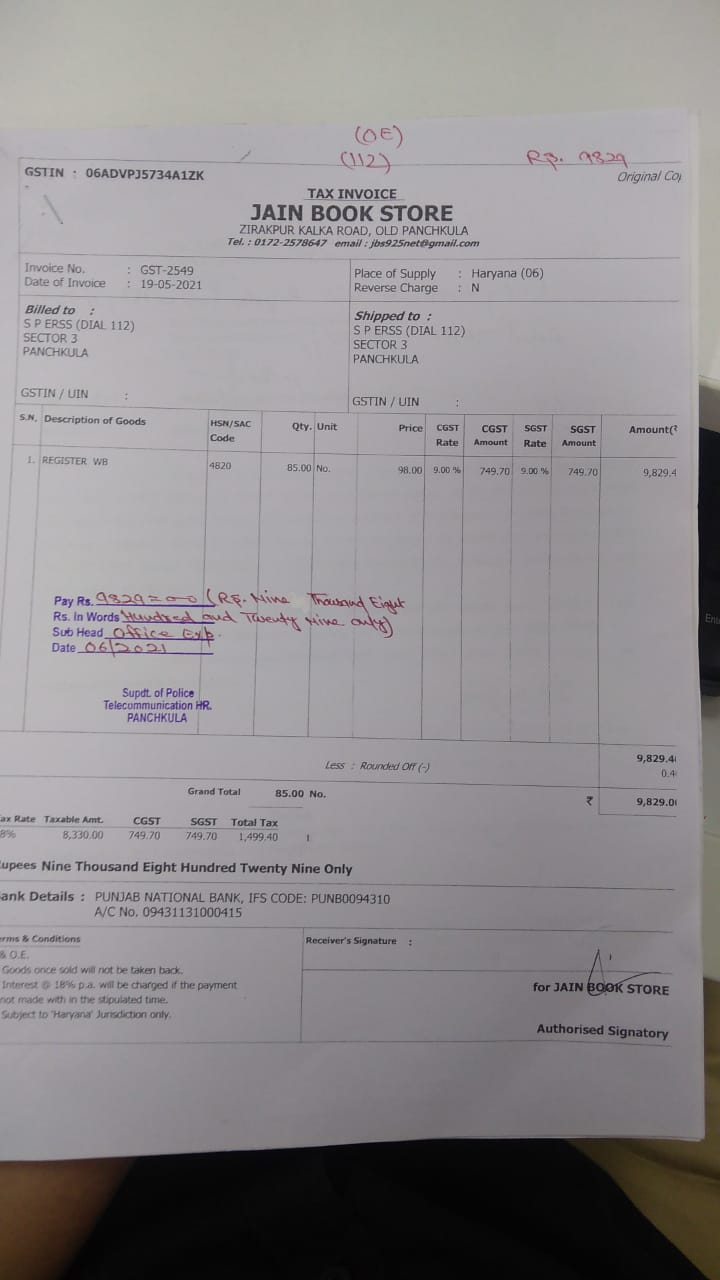 (OE)
(112)
Rs. 9829
GSTIN : 06ADVPJ5734A1ZK
Original Cop
TAX INVOICE
JAIN BOOK STORE
ZIRAKPUR KALKA ROAD, OLD PANCHKULA
Tel. : 0172-2578647 email : jbs925net@gmail.com
Invoice No. : GST-2549
Date of Invoice : 19-05-2021
Place of Supply : Haryana (06)
Reverse Charge : N
Billed to :
S P ERSS (DIAL 112)
SECTOR 3
PANCHKULA
GSTIN / UIN :
Shipped to :
S P ERSS (DIAL 112)
SECTOR 3
PANCHKULA
GSTIN / UIN :
S.N. Description of Goods HSN/SAC Code Qty. Unit Price CGST Rate CGST Amount SGST Rate SGST Amount Amount(₹
1. REGISTER WB 4820 85.00 No. 98.00 9.00 % 749.70 9.00 % 749.70 9,829.4
Pay Rs. 9829=00 (Rs. Nine Thousand Eight
Rs. In Words Hundred and Twenty Nine only)
Sub Head Office Exp.
Date 06/2021
Supdt. of Police
Telecommunication HR.
PANCHKULA
9,829.4
Less : Rounded Off (-) 0.4
Grand Total 85.00 No. ₹ 9,829.0
ax Rate Taxable Amt. CGST SGST Total Tax
8% 8,330.00 749.70 749.70 1,499.40
upees Nine Thousand Eight Hundred Twenty Nine Only
ank Details : PUNJAB NATIONAL BANK, IFS CODE: PUNB0094310
A/C No. 09431131000415
erms & Conditions
& O.E.
Goods once sold will not be taken back.
Interest @ 18% p.a. will be charged if the payment
not made with in the stipulated time.
Subject to 'Haryana' Jurisdiction only.
Receiver's Signature :
for JAIN BOOK STORE
Authorised Signatory